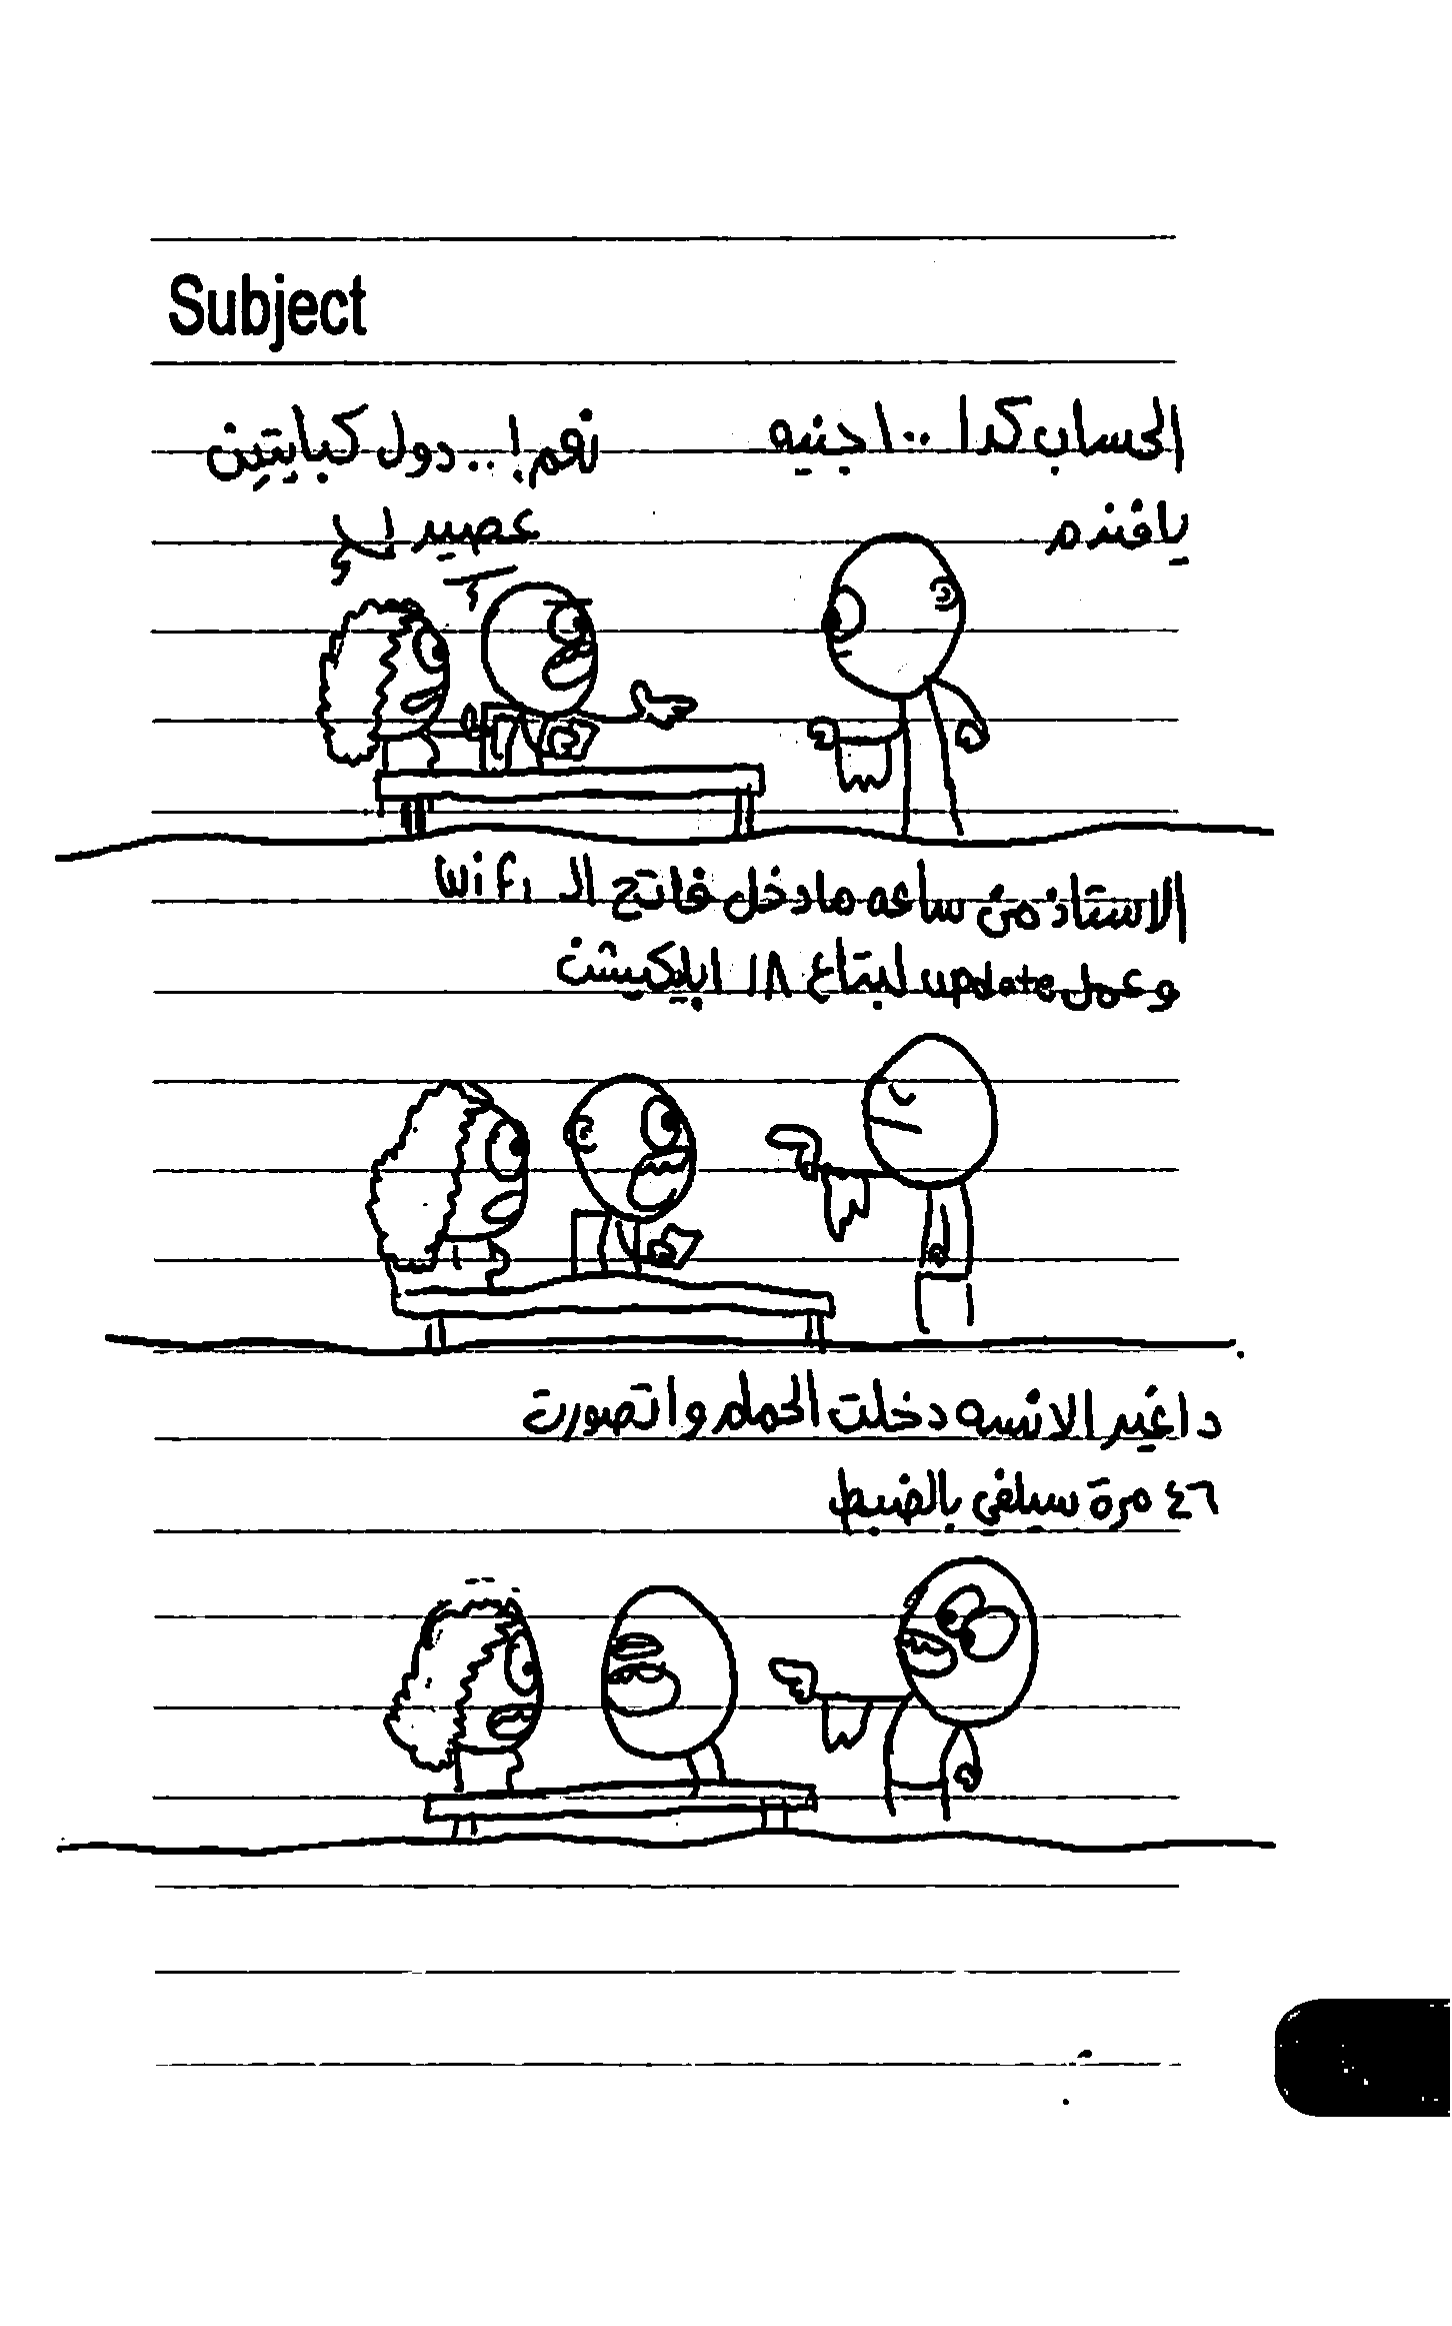 Subject
الحساب كدا ١٠٠ جنيه
يافندم
نعم! .. دول كبايتين
عصير !
الاستاذ من ساعه مادخل فاتح الـ Wifi
وعمل update لبتاع ١٨ ابليكيشن
دا غير الانسه دخلت الحمام واتصورت
٤٦ مرة سيلفي بالضبط